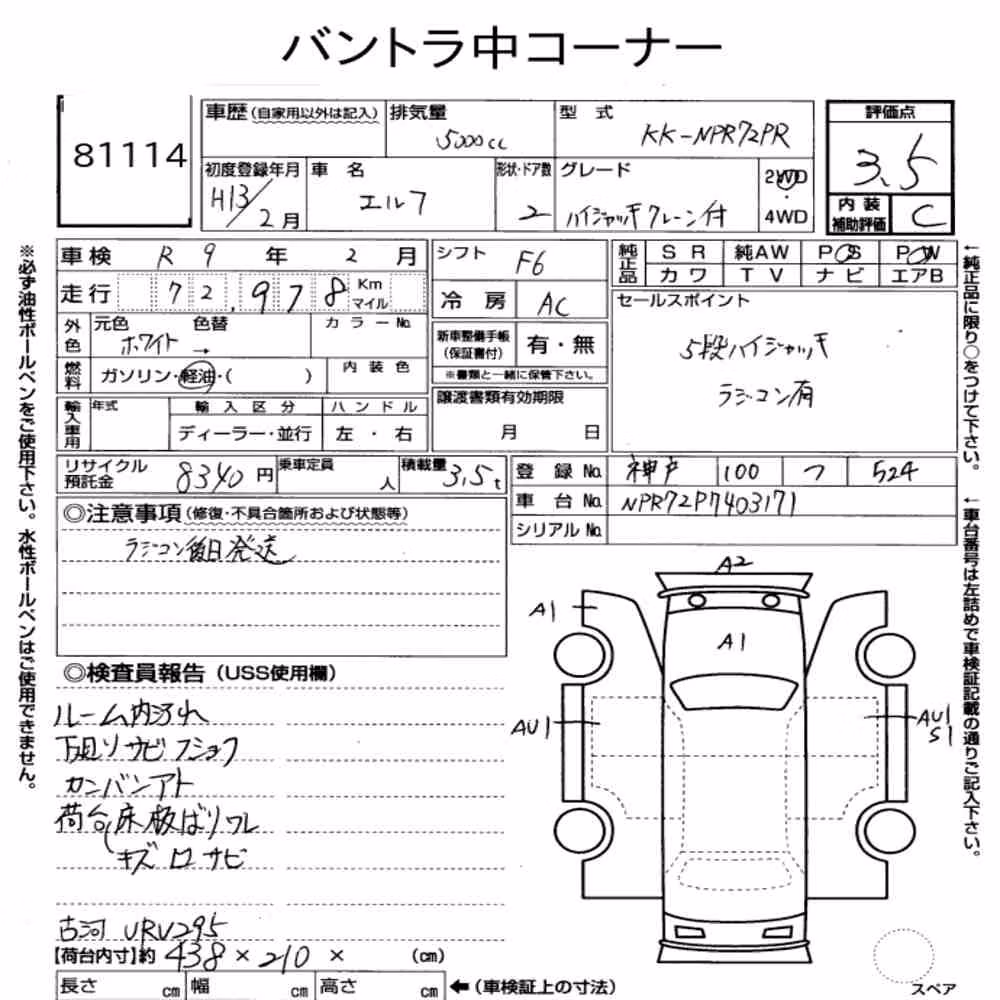 バントラ中コーナー
81114
車歴(自家用以外は記入)
排気量
5000cc
型 式
KK-NPR72PR
評価点
3.5
初度登録年月
H13/2月
車 名
エルフ
形状・ドア数
2
グレード
ハイジャッキクレーン付
2WD
・
4WD
内 装
補助評価
C
車 検 R 9 年 2 月
シフト
F6
純正品
S R
純AW
P S
P W
カ ワ
T V
ナ ビ
エアB
走 行 72,978 Km
マイル
冷 房
AC
セールスポイント
5段ハイジャッキ
ラジコン有
外色
元色
色替
ホワイト →
カ ラ ー No.
新車整備手帳
(保証書付)
有・無
※書類と一緒に保管下さい。
燃料
ガソリン・軽油・( )
内 装 色
譲渡書類有効期限
月 日
輸入車用
年式
輸 入 区 分
ハ ン ド ル
ディーラー・並行
左 ・ 右
リサイクル
預託金
8340円
乗車定員
人
積載量
3.5t
登 録 No.
神戸
100
つ
524
車 台 No.
NPR72P7403171
シリアル No.
◎注意事項(修復・不具合箇所および状態等)
ラジコン後日発送
◎検査員報告(USS使用欄)
ルーム内汚れ
下廻りサビ フショク
カンバンアト
荷台床板ばりワレ
キズ ロ サビ
古河 URV295
【荷台内寸】約 438 × 210 × (cm)
長さ cm
幅 cm
高さ cm
←(車検証上の寸法)
A2
A1
A1
AU1
AU1
S1
スペア
※必ず油性ボールペンをご使用下さい。水性ボールペンはご使用できません。
←純正品に限り○をつけて下さい。
←車台番号は左詰めで車検証記載の通りご記入下さい。